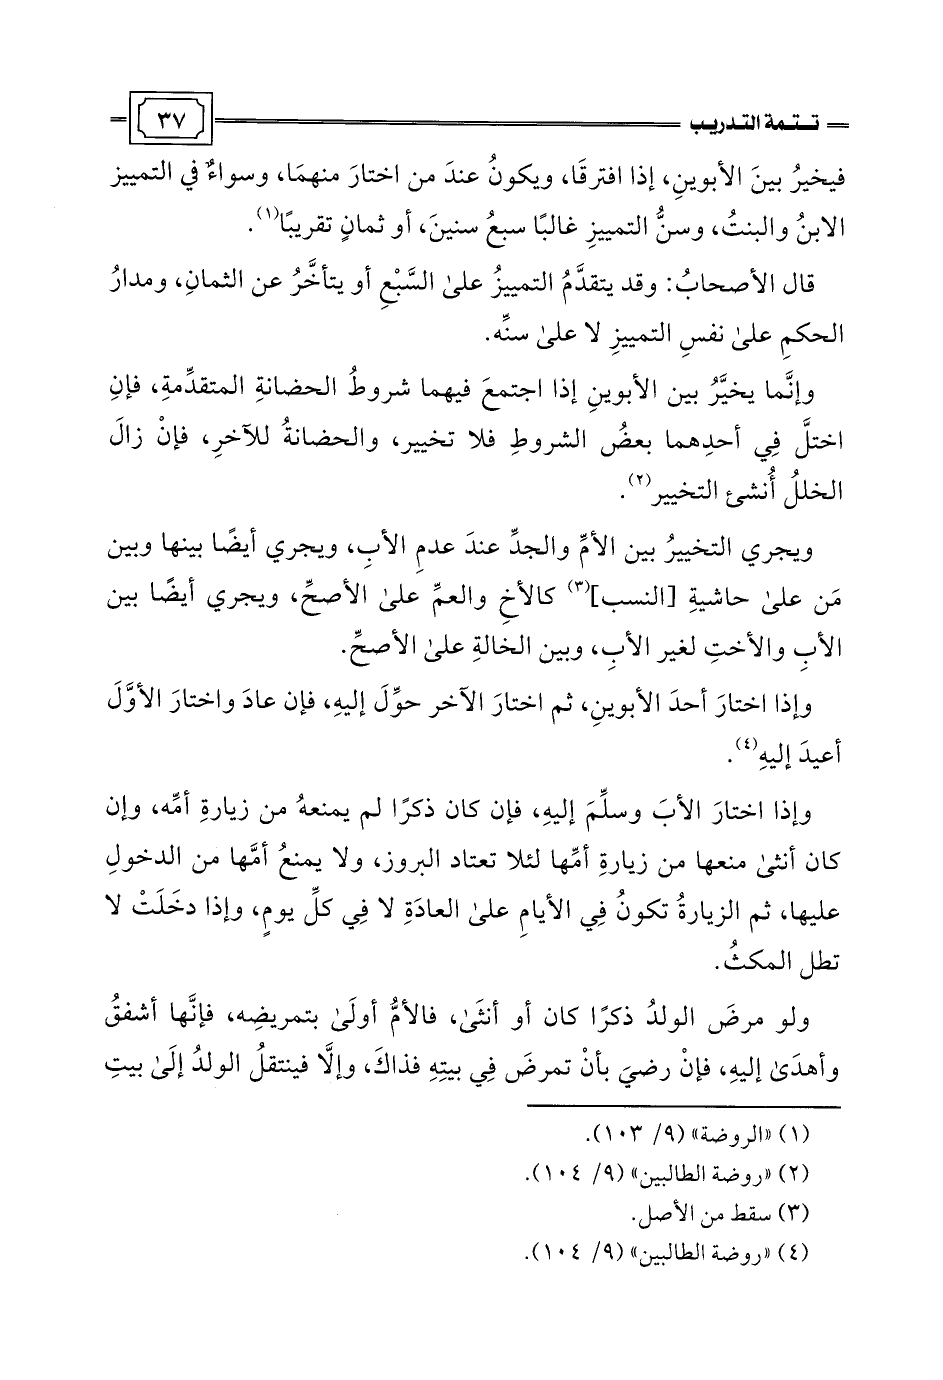 تـتـمة التدريب
٣٧
فيخيرُ بينَ الأبوينِ، إذا افترقَا، ويكونُ عندَ من اختارَ منهمَا، وسواءٌ في التمييز
الابنُ والبنتُ، وسنُّ التمييزِ غالبًا سبعُ سنينَ، أو ثمانٍ تقريبًا(١).
قال الأصحابُ: وقد يتقدَّمُ التمييزُ علىٰ السَّبْعِ أو يتأخَّرُ عن الثمانِ، ومدارُ
الحكمِ علىٰ نفسِ التمييزِ لا علىٰ سنِّه.
وإنَّما يخيَّرُ بين الأبوينِ إذا اجتمعَ فيهما شروطُ الحضانةِ المتقدِّمةِ، فإنِ
اختلَّ فِي أحدِهما بعضُ الشروطِ فلا تخيير، والحضانةُ للآخرِ، فإنْ زالَ
الخللُ أُنشئ التخيير(٢).
ويجري التخييرُ بين الأمِّ والجدِّ عندَ عدمِ الأبِ، ويجري أيضًا بينها وبين
مَن علىٰ حاشيةِ [النسب](٣) كالأخِ والعمِّ علىٰ الأصحِّ، ويجري أيضًا بين
الأبِ والأختِ لغير الأبِ، وبين الخالةِ علىٰ الأصحِّ.
وإذا اختارَ أحدَ الأبوينِ، ثم اختارَ الآخر حوِّلَ إليهِ، فإن عادَ واختارَ الأوَّلَ
أعيدَ إليهِ(٤).
وإذا اختارَ الأبَ وسلِّمَ إليهِ، فإن كان ذكرًا لم يمنعهُ من زيارةِ أمِّه، وإن
كان أنثىٰ منعها من زيارةِ أمِّها لئلا تعتاد البروز، ولا يمنعُ أمَّها من الدخولِ
عليها، ثم الزيارةُ تكونُ فِي الأيامِ علىٰ العادَةِ لا فِي كلِّ يومٍ، وإذا دخَلَتْ لا
تطل المكثُ.
ولو مرضَ الولدُ ذكرًا كان أو أنثَىٰ، فالأمُّ أولَىٰ بتمريضِه، فإنَّها أشفقُ
وأهدَىٰ إليهِ، فإنْ رضيَ بأنْ تمرضَ فِي بيتِهِ فذاكَ، وإلَّا فينتقلُ الولدُ إلَىٰ بيتِ
(١) «الروضة» (٩/ ١٠٣).
(٢) «روضة الطالبين» (٩/ ١٠٤).
(٣) سقط من الأصل.
(٤) «روضة الطالبين» (٩/ ١٠٤).